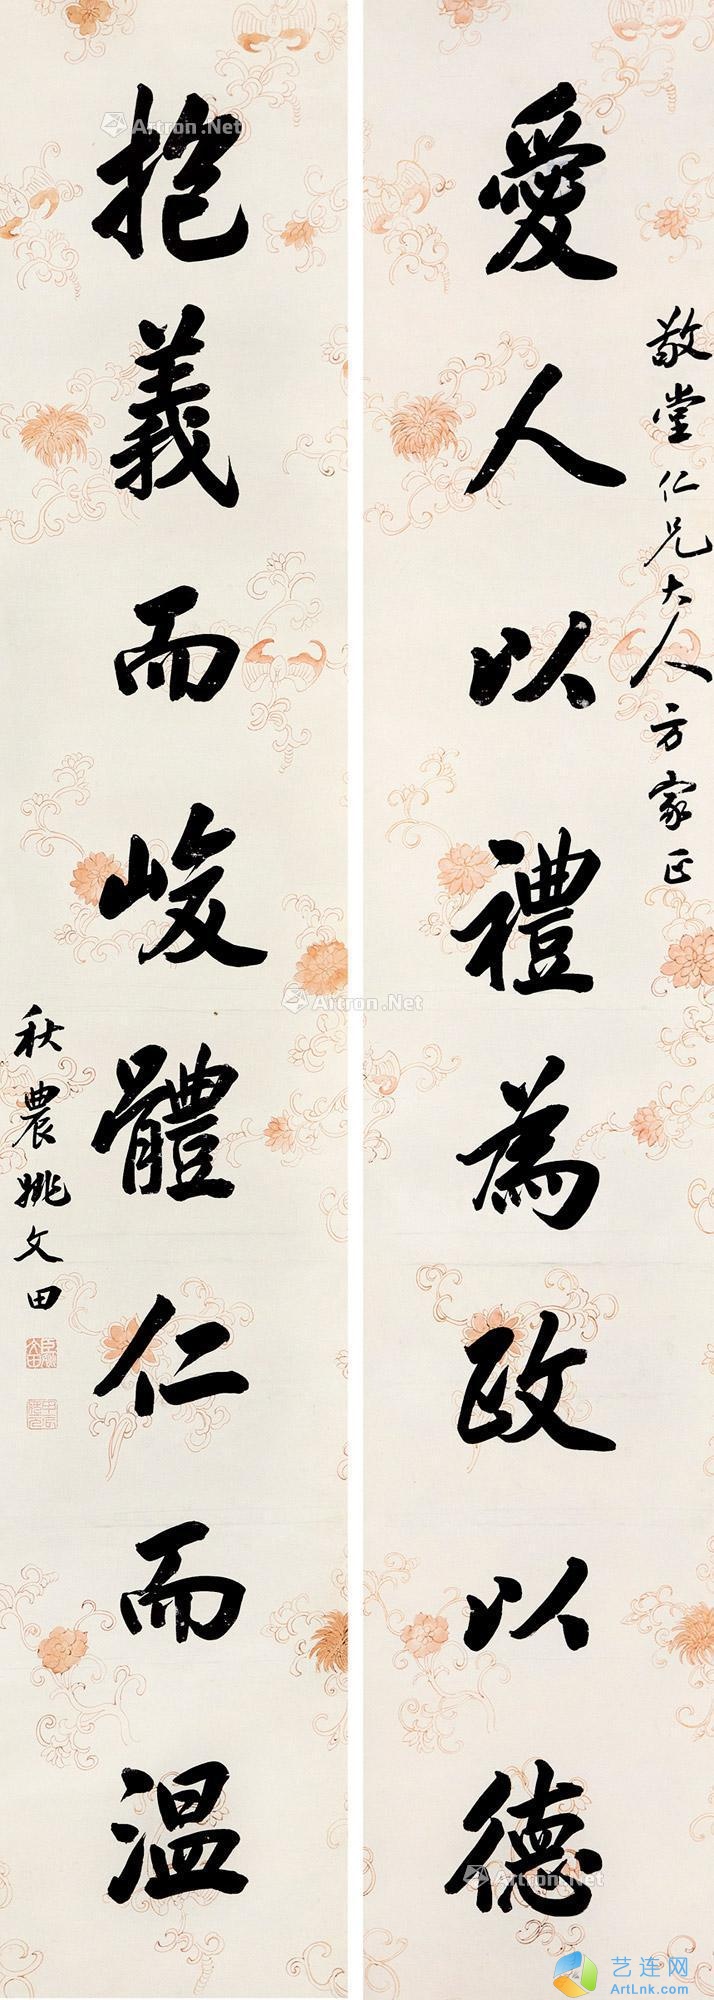 敬堂仁兄大人方家正
愛人以禮為政以德
抱義而峻體仁而溫
秋農姚文田
Artron.Net
Artron.Net
Artron.Net
艺连网
ArtLnk.com